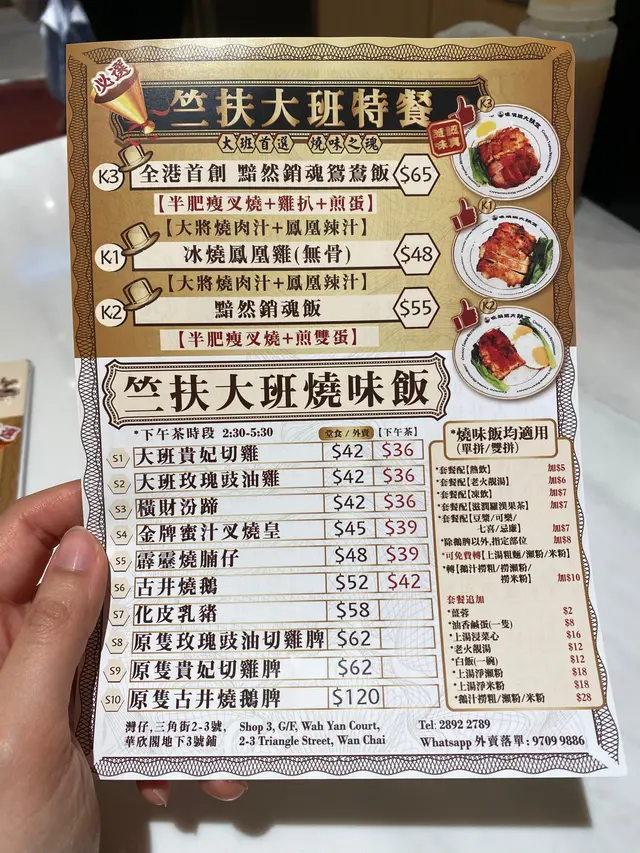 必選
竺扶大班特餐
大班首選 燒味之魂
K3 全港首創 黯然銷魂鴛鴦飯 $65
【半肥瘦叉燒+雞扒+煎蛋】
【大將燒肉汁+鳳凰辣汁】
K1 冰燒鳳凰雞(無骨) $48
【大將燒肉汁+鳳凰辣汁】
K2 黯然銷魂飯 $55
【半肥瘦叉燒+煎雙蛋】
K3
K1
K2
竺扶大班燒味飯
*下午茶時段 2:30-5:30 堂食/外賣 【下午茶】
S1 大班貴妃切雞 $42 $36
S2 大班玫瑰豉油雞 $42 $36
S3 橫財汾蹄 $42 $36
S4 金牌蜜汁叉燒皇 $45 $39
S5 霹靂燒腩仔 $48 $39
S6 古井燒鵝 $52 $42
S7 化皮乳豬 $58
S8 原隻玫瑰豉油切雞脾 $62
S9 原隻貴妃切雞脾 $62
S10 原隻古井燒鵝脾 $120
*燒味飯均適用
(單拼/雙拼)
*套餐配【熱飲】 加$5
*套餐配【老火靚湯】 加$6
*套餐配【凍飲】 加$7
*套餐配【滋潤羅漢果茶】 加$7
*套餐配【豆漿/可樂/
七喜/忌廉】 加$7
*除鵝脾以外,指定部位 加$8
*可免費轉【上湯粗麵/瀨粉/米粉】
*轉【鵝汁撈粗/撈瀨粉/
撈米粉】 加$10
套餐追加
*薑蓉 $2
*油香鹹蛋(一隻) $8
*上湯浸菜心 $16
*老火靚湯 $12
*白飯(一碗) $12
*上湯淨瀨粉 $18
*上湯淨米粉 $18
*鵝汁撈粗/瀨粉/米粉 $28
灣仔,三角街2-3號,
華欣閣地下3號鋪
Shop 3, G/F, Wah Yan Court,
2-3 Triangle Street, Wan Chai
Tel: 2892 2789
Whatsapp 外賣落單: 9709 9886